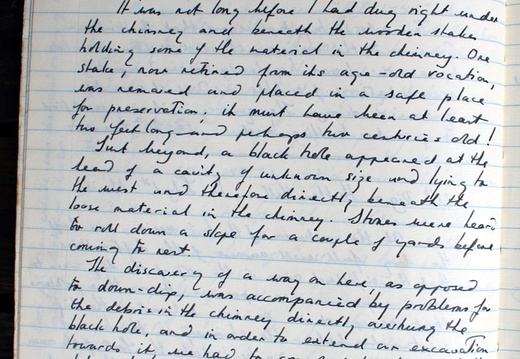 It was not long before I had dug right under
the chimney and beneath the wooden stakes
holding some of the material in the chimney. One
stake, now retired from its age-old vocation,
was removed and placed in a safe place
for preservation; it must have been at least
two feet long and perhaps two centuries old!
Just beyond, a black hole appeared at the
head of a cavity of unknown size and lying to
the west and therefore directly beneath the
loose material in the chimney. Stones were heard
to roll down a slope for a couple of yards before
coming to rest.
The discovery of a way on here, as opposed
to down-dip, was accompanied by problems for
the debris in the chimney directly overhung the
black hole, and in order to extend our excavation
towards it we had to